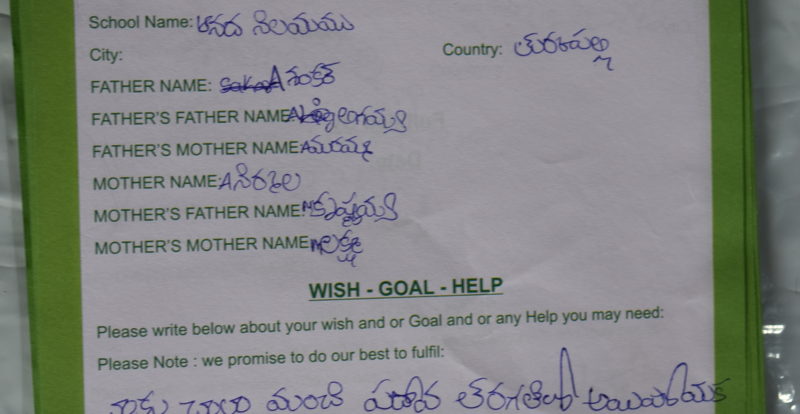 School Name: ఆనద నిలయము
City: Country: తురకపల్లి
FATHER NAME: A శంకర్
FATHER'S FATHER NAME లింగయ్య
FATHER'S MOTHER NAME: A మారమ్మ
MOTHER NAME: A నిర్మల
MOTHER'S FATHER NAME: M కృష్ణయ్య
MOTHER'S MOTHER NAME M లక్ష్మి
WISH - GOAL - HELP
Please write below about your wish and or Goal and or any Help you may need:
Please Note : we promise to do our best to fulfil:
నాకు చాలా మంచి పదోవ తరగతిలో